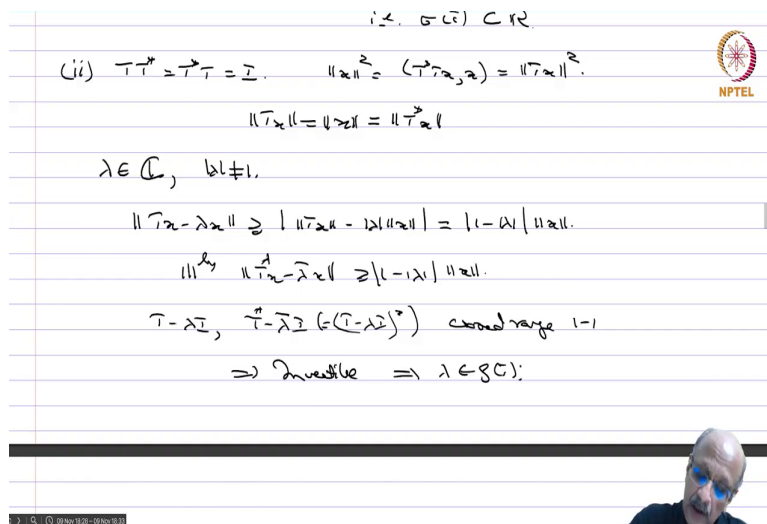 i.e. σ(T) ⊂ ℝ.
(ii) TT* = T*T = I. ‖x‖² = (T*Tx, x) = ‖Tx‖².
‖Tx‖ = ‖x‖ = ‖T*x‖
λ ∈ ℂ, |λ| ≠ 1.
‖Tx - λx‖ ≥ | ‖Tx‖ - |λ| ‖x‖ | = |1 - |λ|| ‖x‖.
|||ly ‖T*x - λ̄x‖ ≥ |1 - |λ|| ‖x‖.
T - λI, T* - λ̄I (= (T - λI)*) closed range 1-1
⇒ Invertible ⇒ λ ∈ ρ(T).
NPTEL
09 Nov 18:28 - 09 Nov 18:33